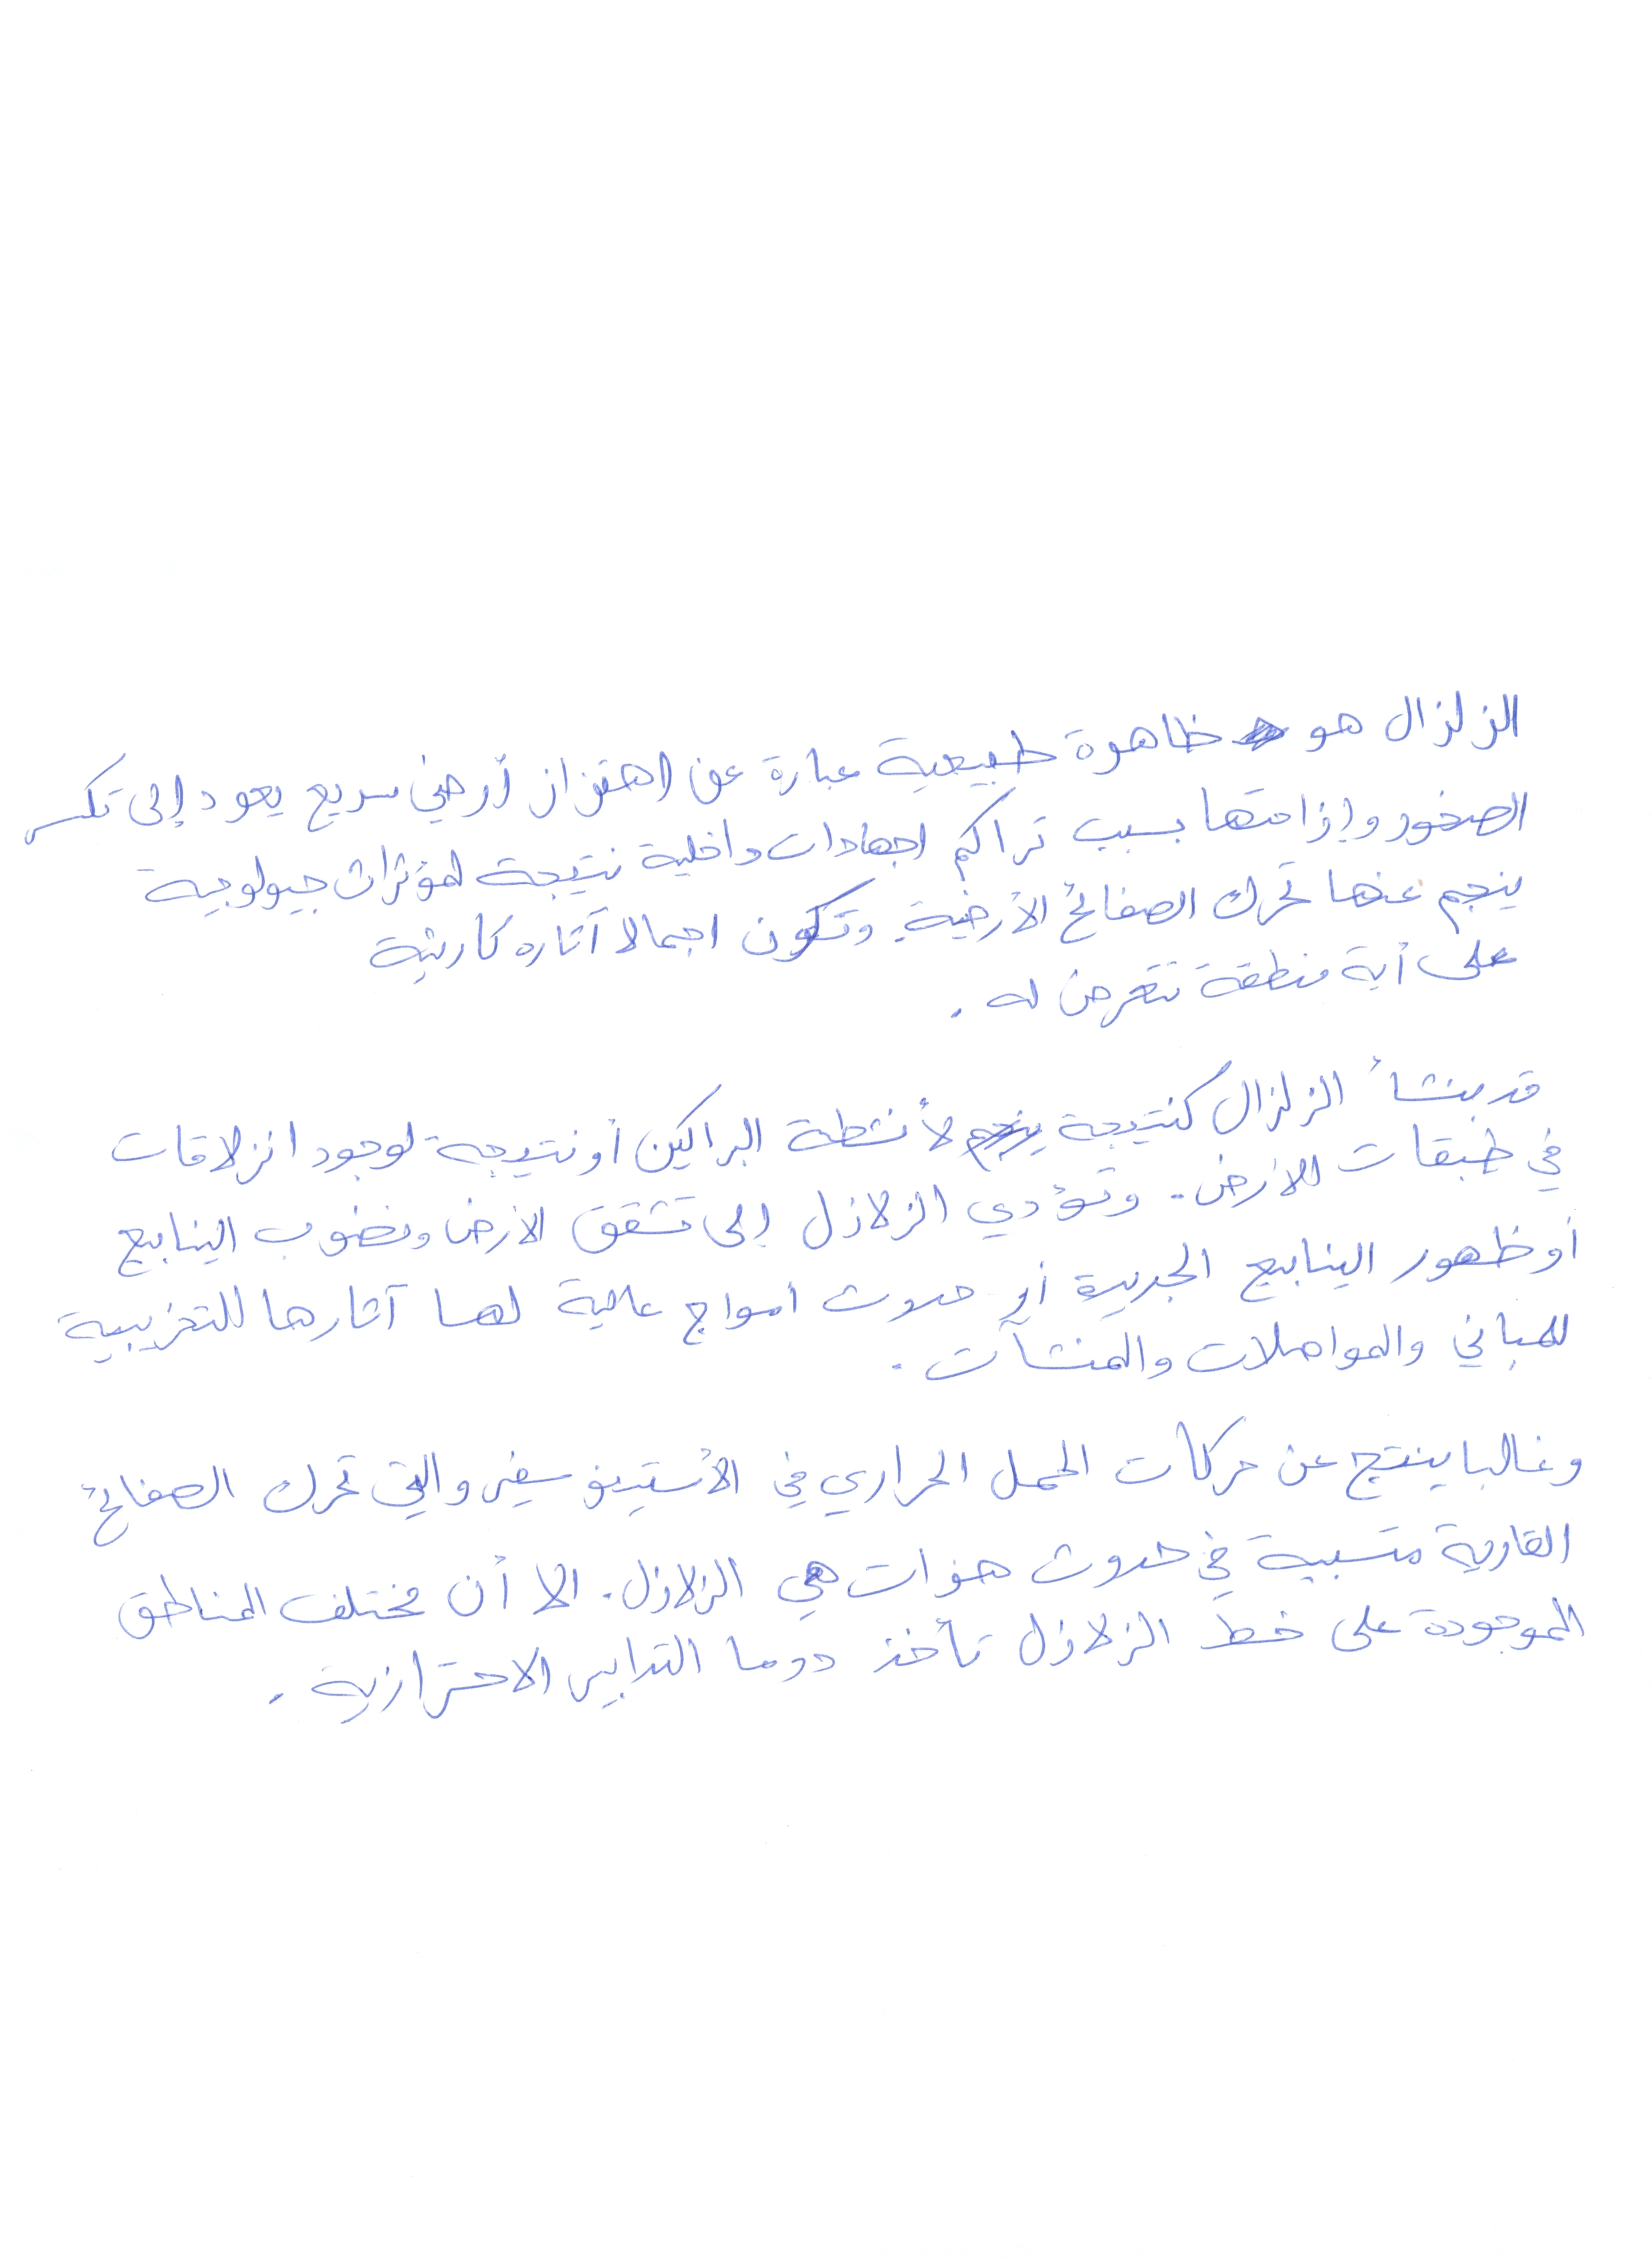 الزلزال هو ظاهرة طبيعية عبارة عن اهتزاز أرضي سريع يعود إلى تكسر
الصخور وإزاحتها بسبب تراكم اجهادات داخلية نتيجة لمؤثرات جيولوجية
ينجم عنها تحرك الصفائح الأرضية. وتكون اجمالا آثاره كارثية
على أية منطقة تتعرض له .
قد ينشأ الزلزال كنتيجة لأنشطة البراكين أو نتيجة لوجود انزلاقات
في طبقات للأرض. وتؤدي الزلازل إلى تشقق الأرض ونضوب الينابيع
أو ظهور الينابيع الجديدة أو حدوث أمواج عالية لها آثارها للتخريبية
للمباني والمواصلات والمنشآت .
وغالبا ينتج عن حركات الحمل الحراري في الأستينوسفير والتي تحرك الصفائح
القارية متسببة في حدوث هزات هي الزلازل. الا أن مختلف المناطق
الموجودة على خط الزلازل تأخذ دوما التدابير الاحترازية .